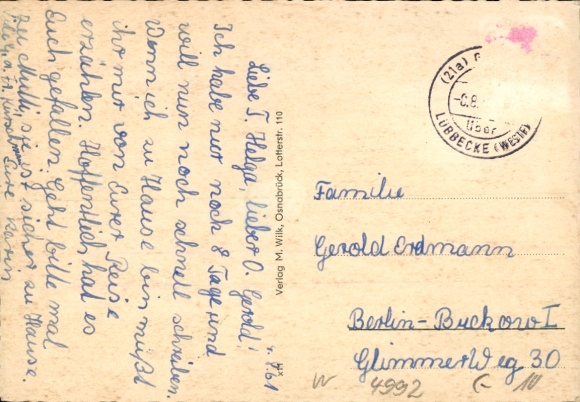 Liebe T. Helga, lieber O. Gerold!
Ich habe nur noch 8 Tage und
will nun noch schnell schreiben.
Wenn ich zu Hause bin müßt
ihr mir von Eurer Reise
erzählen. Hoffentlich hat es
Euch gefallen. Geht bitte mal
zu Mutti, sie ist sicher zu Hause.
Eure Karin
Verlag M. Wilk, Osnabrück, Lotterstr. 110
(21a)
-6.8.
über
LÜBBECKE (WESTF)
Familie
Gerold Erdmann
Berlin-Buckow I
Glimmer Weg 30
W 4992
10